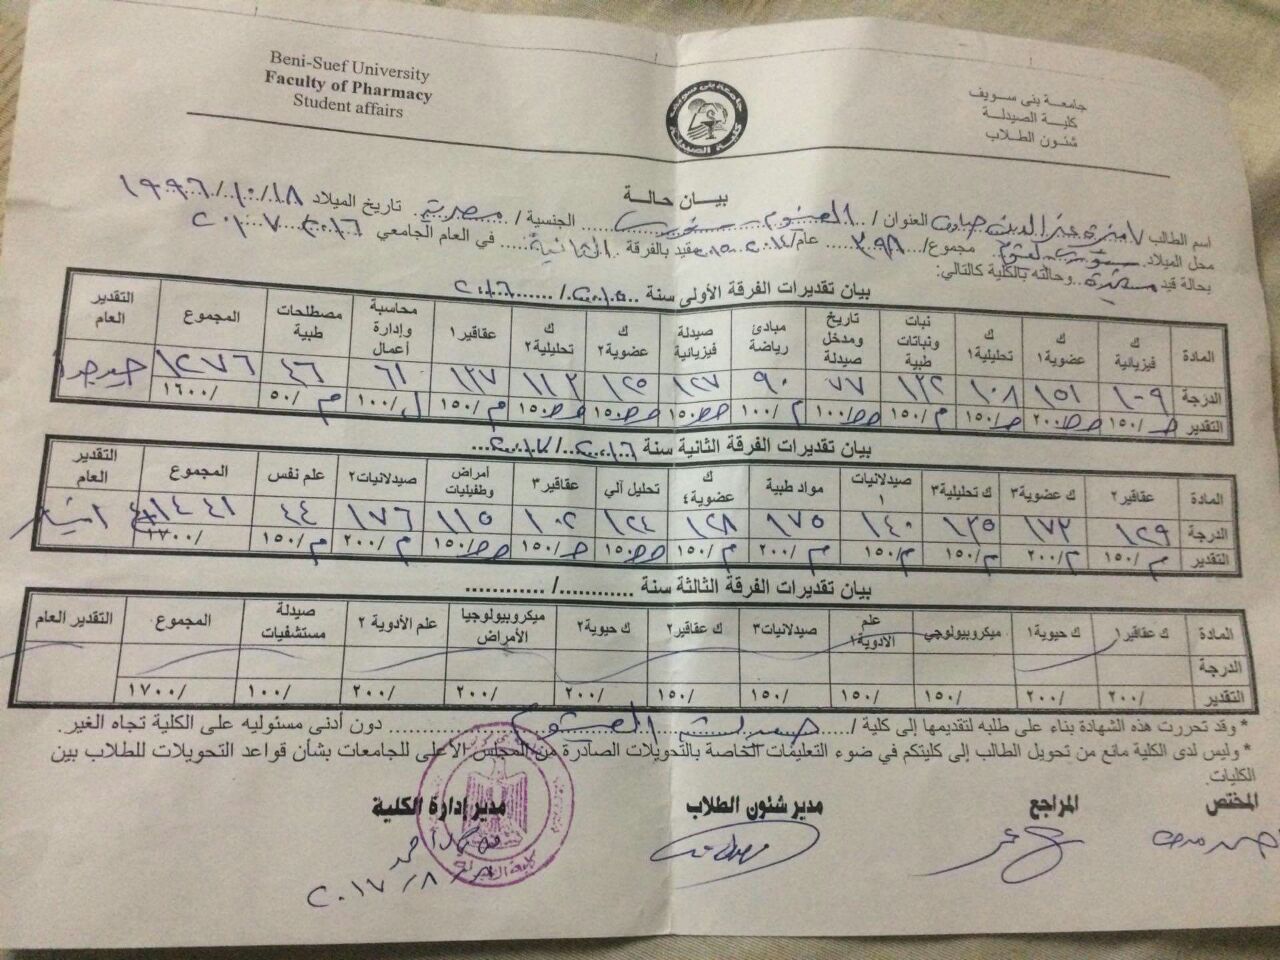 Beni-Suef University
Faculty of Pharmacy
Student affairs
جامعة بنى سويف
كلية الصيدلة
شئون الطلاب
جامعة بنى سويف
كلية الصيدلة
بيـــان حالـــة
اسم الطالب / العنوان / الفيوم الجنسية / مصرية تاريخ الميلاد ١٩٩٦/١٠/١٨
محل الميلاد مجموع/ ٣٩٨ عام/ ٢٠١٤ مقيد بالفرقة الثانية في العام الجامعي ٢٠١٦/٢٠١٧
بحالة قيد مستجدة وحالته بالكلية كالتالي:
بيان تقديرات الفرقة الأولى سنة ٢٠١٥/٢٠١٦
المادة ك فيزيائية ك عضوية١ ك تحليلية١ نبات ونباتات طبية تاريخ ومدخل صيدلة مبادئ رياضة صيدلة فيزيائية ك عضوية٢ ك تحليلية٢ عقاقير١ محاسبة وإدارة أعمال مصطلحات طبية المجموع التقدير العام
الدرجة ١٠٩ ١٥١ ١٠٨ ١٣٢ ٧٧ ٩٠ ١٢٧ ١٢٥ ١١٣ ١٣٧ ٦١ ٤٦ ١٢٧٦ جيد جدا
التقدير ج /١٥٠ جج /٢٠٠ ج /١٥٠ م /١٥٠ جج /١٠٠ م /١٠٠ جج /١٥٠ جج /١٥٠ جج /١٥٠ م /١٥٠ ل /١٠٠ م /٥٠ /١٦٠٠
بيان تقديرات الفرقة الثانية سنة ٢٠١٦/٢٠١٧
المادة عقاقير ٢ ك عضوية٣ ك تحليلية٣ صيدلانيات ١ مواد طبية ك عضوية٤ تحليل آلي عقاقير٣ أمراض وطفيليات صيدلانيات٢ علم نفس المجموع التقدير العام
الدرجة ١٢٩ ١٧٣ ١٣٥ ١٤٠ ١٧٥ ١٢٨ ١٢٤ ١٠٢ ١١٥ ١٧٦ ٤٤ ١٤٤١ امتياز
التقدير م /١٥٠ م /٢٠٠ م /١٥٠ م /١٥٠ م /٢٠٠ م /١٥٠ جج /١٥٠ ج /١٥٠ جج /١٥٠ م /٢٠٠ م /١٥٠ /١٧٠٠
بيان تقديرات الفرقة الثالثة سنة ............/ ............
المادة ك عقاقير١ ك حيوية١ ميكروبيولوجي علم الادوية١ صيدلانيات٣ ك عقاقير٢ ك حيوية٢ ميكروبيولوجيا الأمراض علم الأدوية ٢ صيدلة مستشفيات المجموع التقدير العام
الدرجة
التقدير /٢٠٠ /٢٠٠ /١٥٠ /١٥٠ /١٥٠ /١٥٠ /٢٠٠ /٢٠٠ /٢٠٠ /١٠٠ /١٧٠٠
* وقد تحررت هذه الشهادة بناء على طلبه لتقديمها إلى كلية / صيدلة الفيوم دون أدنى مسئوليه على الكلية تجاه الغير.
* وليس لدى الكلية مانع من تحويل الطالب إلى كليتكم في ضوء التعليمات الخاصة بالتحويلات الصادرة من المجلس الأعلى للجامعات بشأن قواعد التحويلات للطلاب بين
الكليات.
المختص المراجع مدير شئون الطلاب مدير إدارة الكلية
كلية الصيدلة
٢٠١٧/٨/